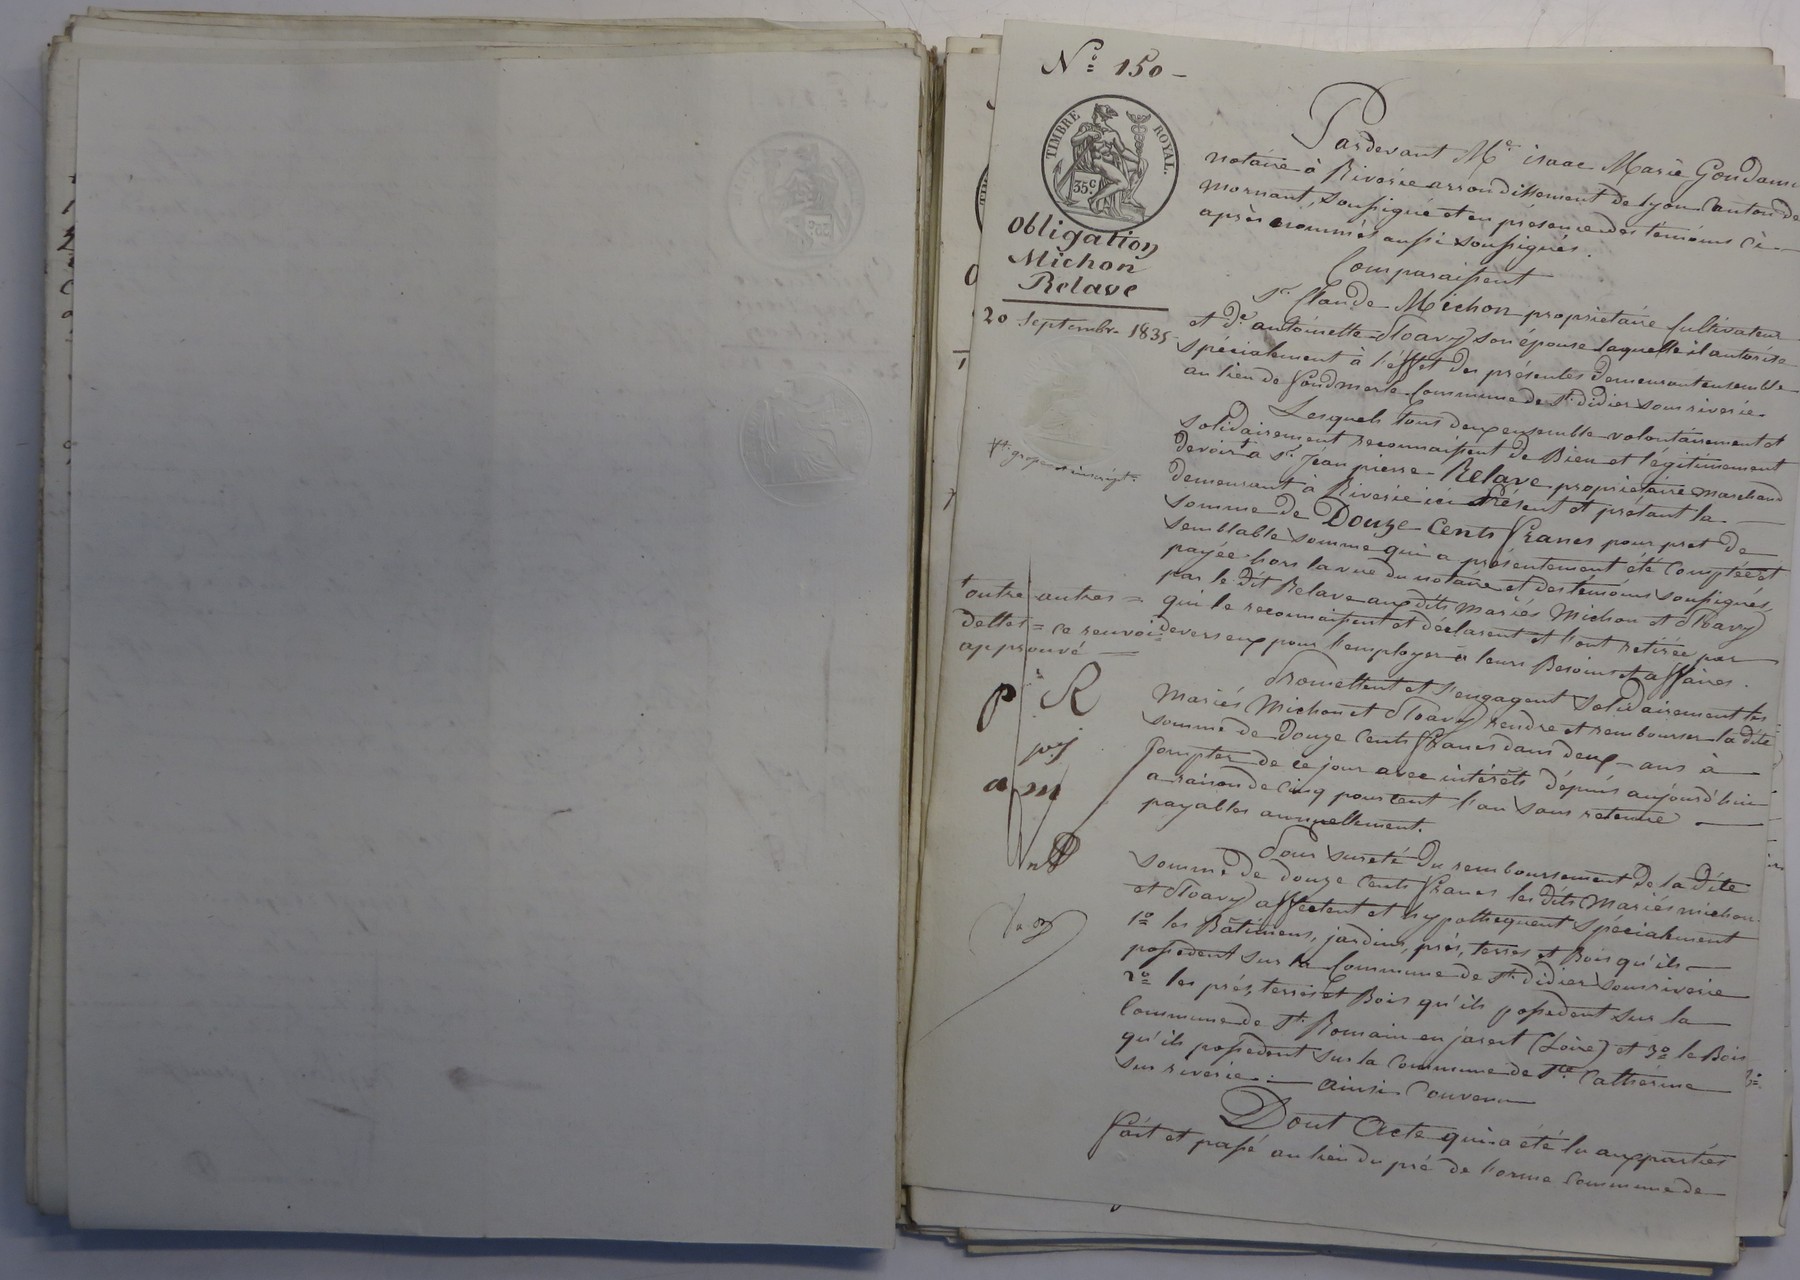 N.° 150 –
TIMBRE ROYAL.
35c
Obligation
Michon
Relave
20 Septembre 1835
Pardevant Me. isaac Marie Gondam
notaire à Riverie arrondissement de Lyon Canton de
mornant, soussigné et en présence des témoins ci-
après nommés aussi soussignés.
Comparaissent
Sr. Claude Michon propriétaire Cultivateur
et de. antoinette sonépouse laquelle il autorise
spécialement à l'effet des présentes demeurant ensemble
au lieu de fondmerle Commune de St. didier sous riverie.
Lesquels tous deux ensemble volontairement et
solidairement reconnaissent de Bien et légitimement
devoir à Sr. Jean pierre Relave propriétaire marchand
demeurant à Riverie ici Présent et pretant la —
somme de Douze Cents francs pour pret de
semblable somme qui a présentement été Comptée et
payée hors la vue du notaire et des témoins soussignés,
par le dit Relave aux dits mariés Michon et
qui le reconnaissent et déclarent et l'ont retirée par
devers eux pour l'employer à leurs Besoins et affaires.
outre autres =
dettes = ce renvoi
approuvé —
Promettent et s'engagent solidairement les
Mariés Michon et rendre et rembourser la dite
somme de Douze Cents francs dans deux ans à
Compter de ce jour avec intérêts dépuis aujourd'hui
a raison de Cinq pour Cent l'an sans retenue —
payables annuellement.
p R
a m
Pour sureté du remboursement de la dite
somme de douze Cents francs les dits Mariés michon
et affectent et hypothequent spécialement
1.° les Bâtimens, jardins, prés, terres et Bois qu'ils —
possedent sur la Commune de St. didier sous riverie
2.° les prés, terres et Bois qu'ils possedent sur la
Commune de St. Romain en jarest (Loire) et 3.° le Bois
qu'ils possedent sur la Commune de Ste. Catherine
sur riverie. — ainsi Convenu
Dont Acte qui a été lu aux parties
fait et passé au lieu du pré de l'orme Commune de